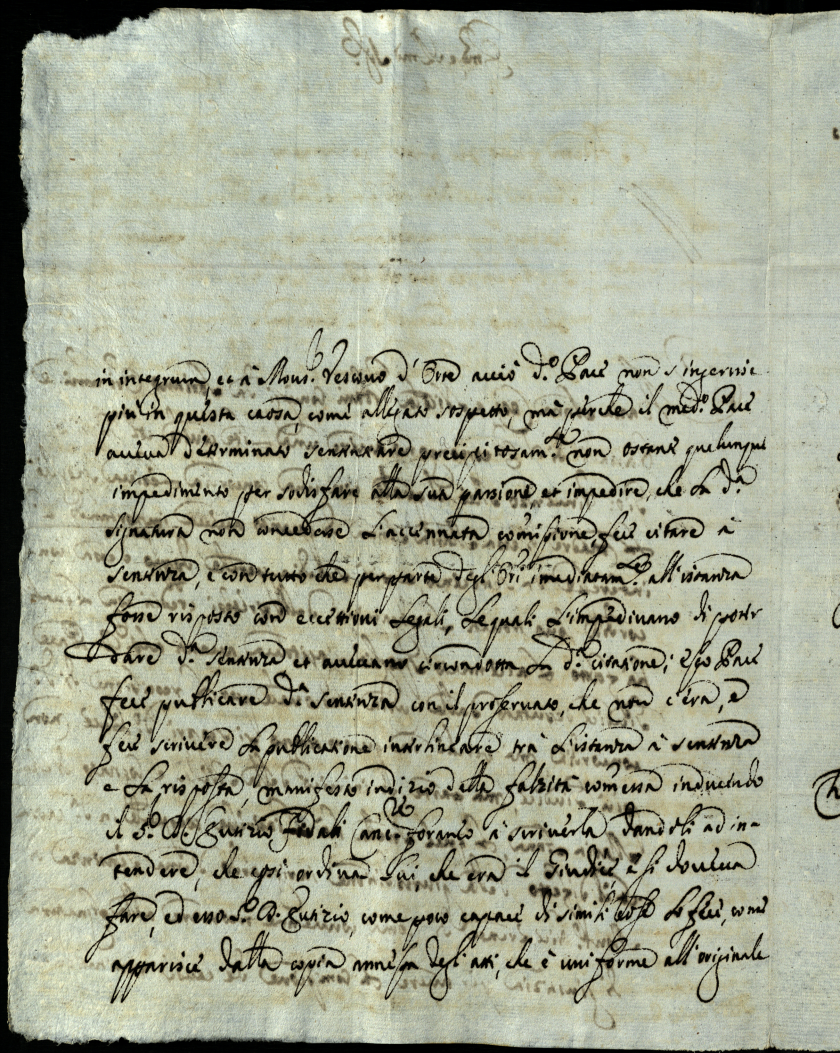 in integrum, et à Mons.r Vescovo d'Orte acciò d.o Pace non s'ingerisse
più in questa causa, come allegato sospetto, mà perche il med.o Pace
aveva determinato sentenziare precipitosam.te non ostante qualunque
impedimento per sodisfare alla sua passione, et impedire, che la d.a
signatura non concedesse l'accennata comissione fece citare à
sentenza, e con tutto che per parte degl'Ori imediatam.te all'istanza
fosse risposto con eccettioni legali, le quali l'impedivano di poter
dare d.a sentenza et avevano circondotta la d.a citatione; esso Pace
fece publicare d.a sentenza con il preservato, che non c'era, e
fece scrivere la publicatione interlineare trà l'istanza à sentenza
e la risposta, manifesto indizio della falzità comessa inducendo
il S.r D. Eutizio Fedali Canc.re foraneo à scriverla dandoli ad in-
tendere, che cosi ordinava lui, che era il Giudice e si doveva
fare, ed esso S.r D. Eutizio, come poco capace di simili cose lo fece, come
apparisce dalla copia annessa degl'atti, che è uniforme all'originale